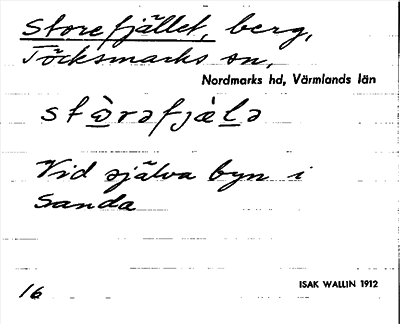 Storefjället, berg,
Töcksmarks sn,
Nordmarks hd, Värmlands län
stὼrəfjàlə
Vid själva byn i
Sanda
16
ISAK WALLIN 1912